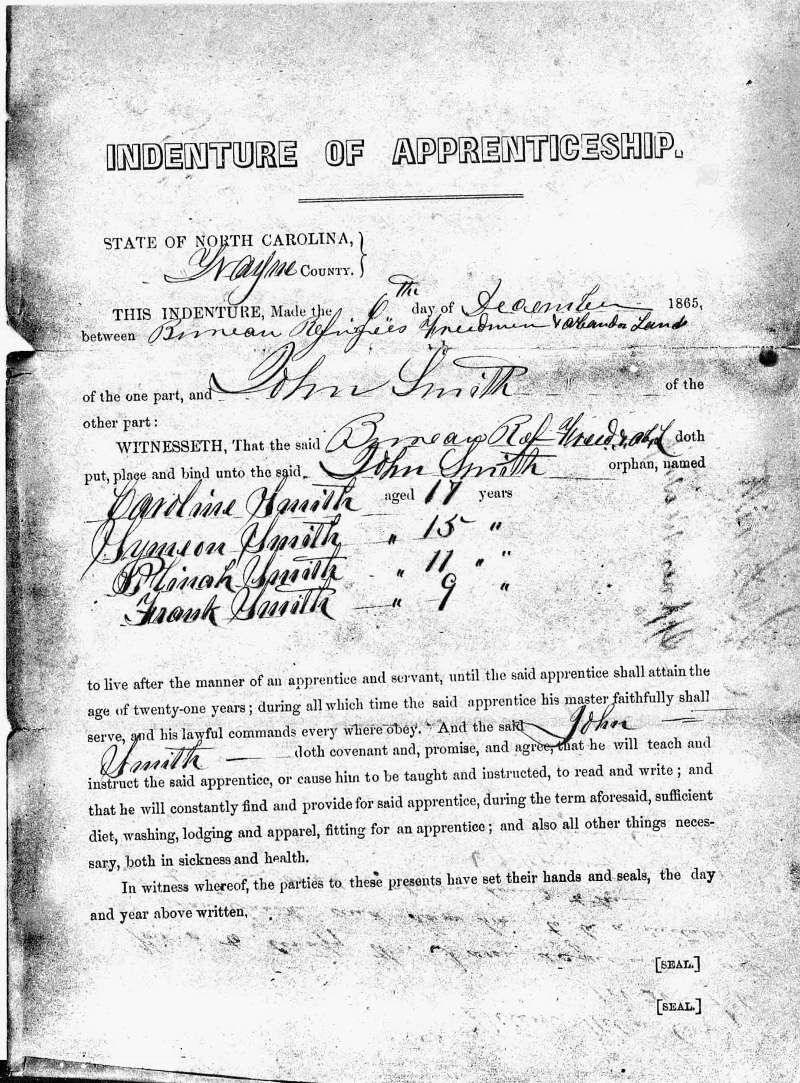 INDENTURE OF APPRENTICESHIP.
STATE OF NORTH CAROLINA, }
Wayne COUNTY. }
THIS INDENTURE, Made the 6th day of December 1865,
between Bureau Refugees Freedmen & Abandon Lands
of the one part, and John Smith of the
other part:
WITNESSETH, That the said Bureau Ref Freed & Ab L doth
put, place and bind unto the said John Smith orphan, named
Caroline Smith aged 17 years
Symeon Smith " 15 "
Smith " 11 " "
Frank Smith " 9 "
to live after the manner of an apprentice and servant, until the said apprentice shall attain the
age of twenty-one years; during all which time the said apprentice his master faithfully shall
serve, and his lawful commands every where obey. And the said John
Smith doth covenant and, promise, and agree, that he will teach and
instruct the said apprentice, or cause him to be taught and instructed, to read and write; and
that he will constantly find and provide for said apprentice, during the term aforesaid, sufficient
diet, washing, lodging and apparel, fitting for an apprentice; and also all other things neces-
sary, both in sickness and health.
In witness whereof, the parties to these presents have set their hands and seals, the day
and year above written.
[SEAL.]
[SEAL.]